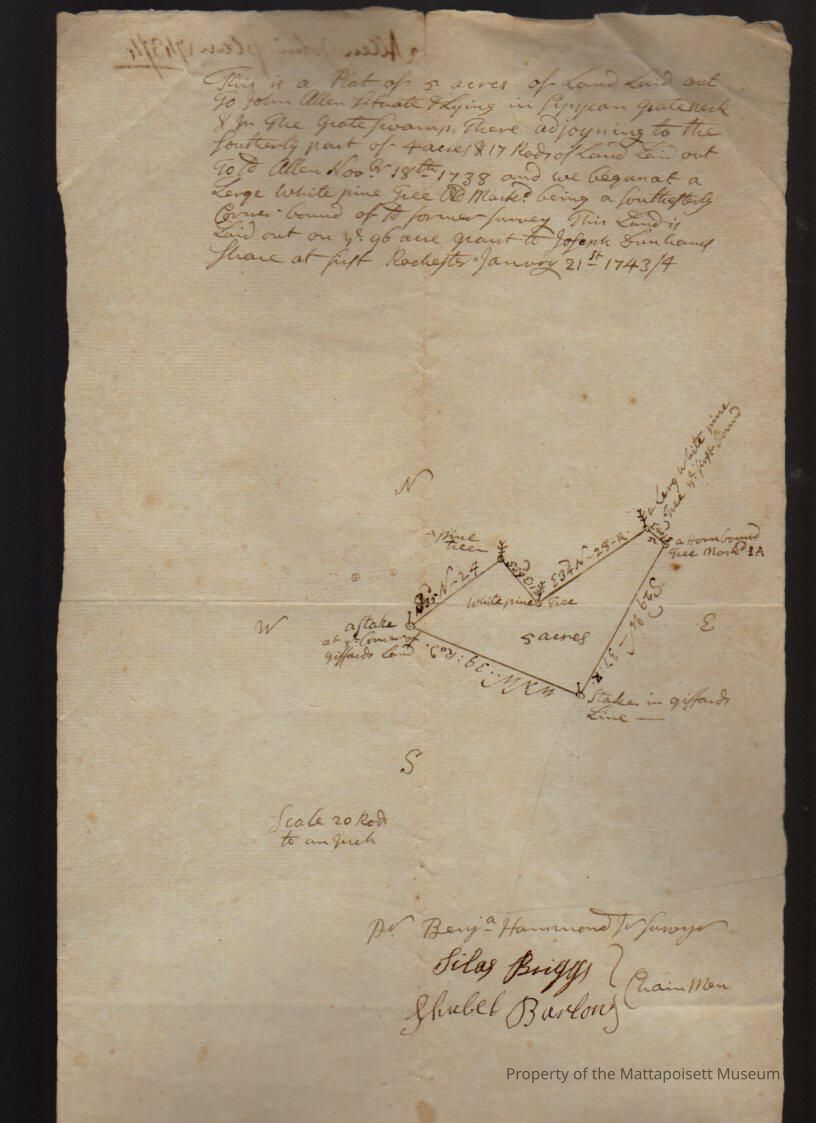 This is a Plat of 5 acres of Land Laid out
To John Allen Situate & Lying in Sippican Grate neck
& In The Grate Swamp. There adjoyning to the
Southerly part of 4 acres & 17 Rods of Land Laid out
To sd Allen Novbr 18th 1738 and we began at a
Large White pine Tree Old Markd being a Southesterly
Corner bound of sd former Survey This Land is
Laid out on ye 96 acre grant to Joseph Dunhams
Share at first Rochester Janury 21st 1743/4
N
a Larg White pine
Tree ye first bound
a pine
tree
E 34d N - 28 - R.
a Hornbound
Tree Markd IA
N - 24
White pine Tree
W
a Stake
at ye Corner of
Giffards Land
5 acres
E
S 29 W - 37 R.
WNW - 39 : Rod
Stake in Giffards
Line
S
Scale 20 Rods
to an Inch
Pr Benja Hammond Jr Survyr
Silas Briggs
Chain Men
Shubel Barlow
Property of the Mattapoisett Museum